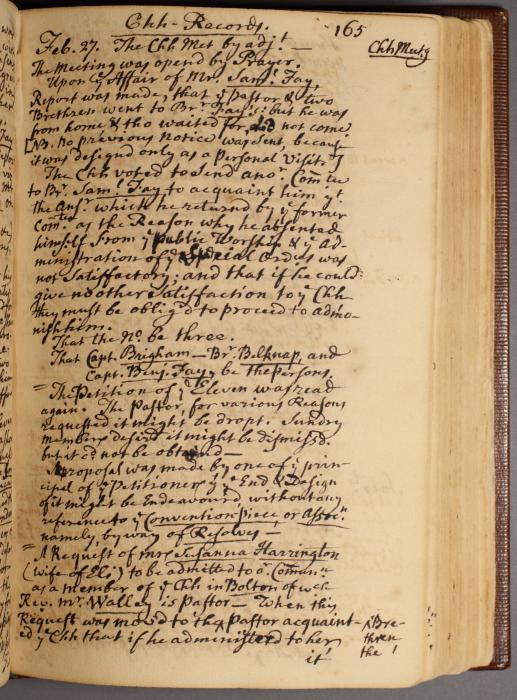 Chh-Records. 165
Feb. 27. The Chh Met by adjt — Chh Meetg
The Meeting was opend by Prayer.
Upon ye Affair of Mr. Saml. Fay,
Report was made, that ye Pastor & two
Brethren went to Br. Fay's: but he was
from home & tho waited for, did not come
[NB. No previous Notice was sent, because
it was designd only as a personal Visit.]
The Chh voted to Send anor. Comtee
to Br. Saml. Fay to acquaint him yt
the Ansr. which he returned by ye former
Comtee as the Reason why he absented
himself from ye public Worship & ye Ad-
ministration of ye Special Ordces was
not Satisfactory; and that if he could
give no other Satisfaction to ye Chh
they must be oblig'd to proceed to admo-
nish him.
That the No. be three.
That Capt. Brigham — Br. Belknap, and
Capt. Benj. Fay, be the Persons.
= The Petition of ye Eleven was read
again. The Pastor, for various Reasons
requested it might be dropt. Sundry
members desir'd it might be dismissd.
but it cd not be obtaind —
A Proposal was made by one of ye prin-
cipal of ye Petitioners yt ye End & Design
of it might be Endeavourd without any
reference to ye Convention piece, or Assocn.
namely, by way of Resolves —
= A Request of Mrs Susanna Harrington
(wife of Eli) to be admitted to or. Comunn
as a member of ye Chh in Bolton of wch
Rev. Mr. Walley is Pastor — When this
Request was movd to the ^ Pastor acquaint- ^ Bre-
ed ye Chh that if he administerd to her thren
it the